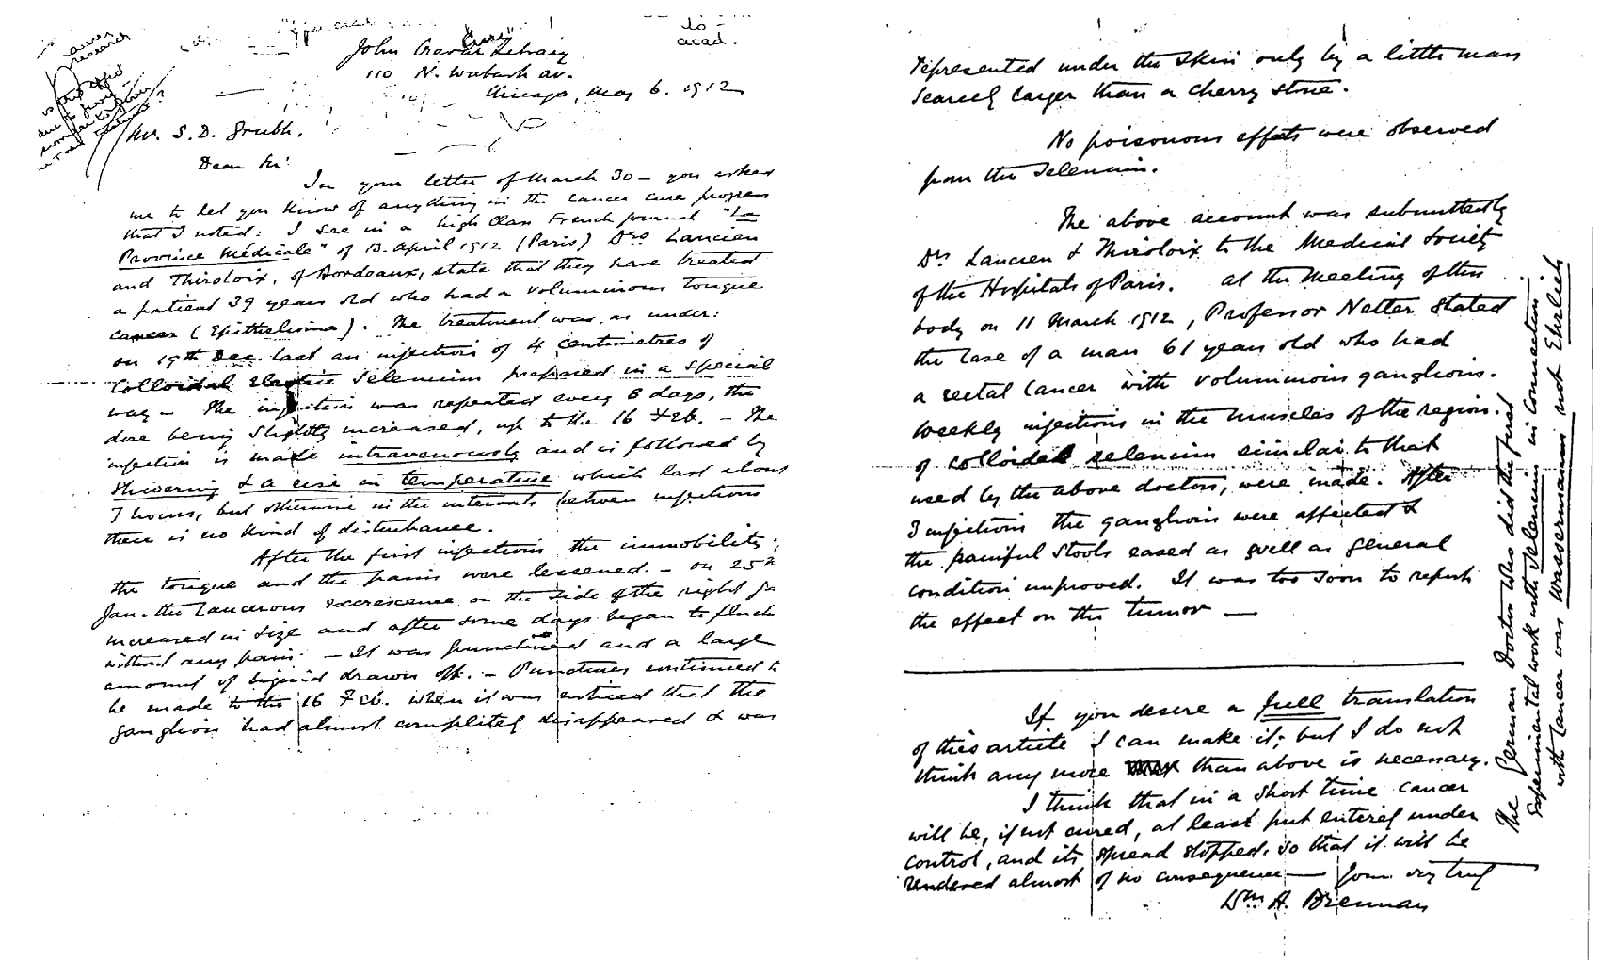 to -
acad.
research
John Crerar Library
110 N. Wabash av.
Chicago, May 6. 1912
Mr. S. D. Grubb.
Dear Sir:
In your letter of March 30 - you asked
me to let you know of anything in the cancer cure progress
that I noted: I see in a high class French journal "La
Province Médicale" of 13. April 1912 (Paris) Drs Lancien
and Thiroloix, of Bordeaux, state that they have treated
a patient 39 years old who had a voluminous tongue
cancer (Epithelioma). The treatment was as under:
on 19th Dec. last an injection of 4 centimetres of
Colloidal Selenium prepared in a special
way - The injection was repeated every 6 days, the
dose being slightly increased, up to the 16 Feb. - The
injection is made intravenously and is followed by
shivering & a rise in temperature which last about
3 hours, but otherwise in the intervals between injections
there is no kind of disturbance.
After the first injections the immobility
the tongue and the pains were lessened. - on 25th
Jan. the cancerous excrescence on the side of the right ja
increased in size and after some days began to
without any pain. - It was punctured and a large
amount of liquid drawn off. - Punctures continued to
be made to the 16 Feb. when it was noticed that the
ganglion had almost completely disappeared & was
represented under the skin only by a little mass
scarcely larger than a cherry stone.
No poisonous effects were observed
from the selenium.
The above account was submitted by
Drs Lancien & Thiroloix to the Medical Society
of the Hospitals of Paris. at the meeting of this
body on 11 March 1912, Professor Netter stated
the case of a man 61 years old who had
a rectal cancer with voluminous ganglions.
Weekly injections in the muscles of the region.
of colloidal selenium similar to that
used by the above doctors, were made. After
3 injections the ganglions were affected &
the painful stools eased as well as general
condition improved. It was too soon to report
the effect on the tumor —
If you desire a full translation
of this article I can make it; but I do not
think any more than above is necessary.
I think that in a short time cancer
will be, if not cured, at least put entirely under
control, and its spread stopped, so that it will be
rendered almost of no consequence — Yours very truly
Wm A. Brennan
The German Doctor who did the first
experimental work with selenium in connection
with cancer was Wassermann not Ehrlich